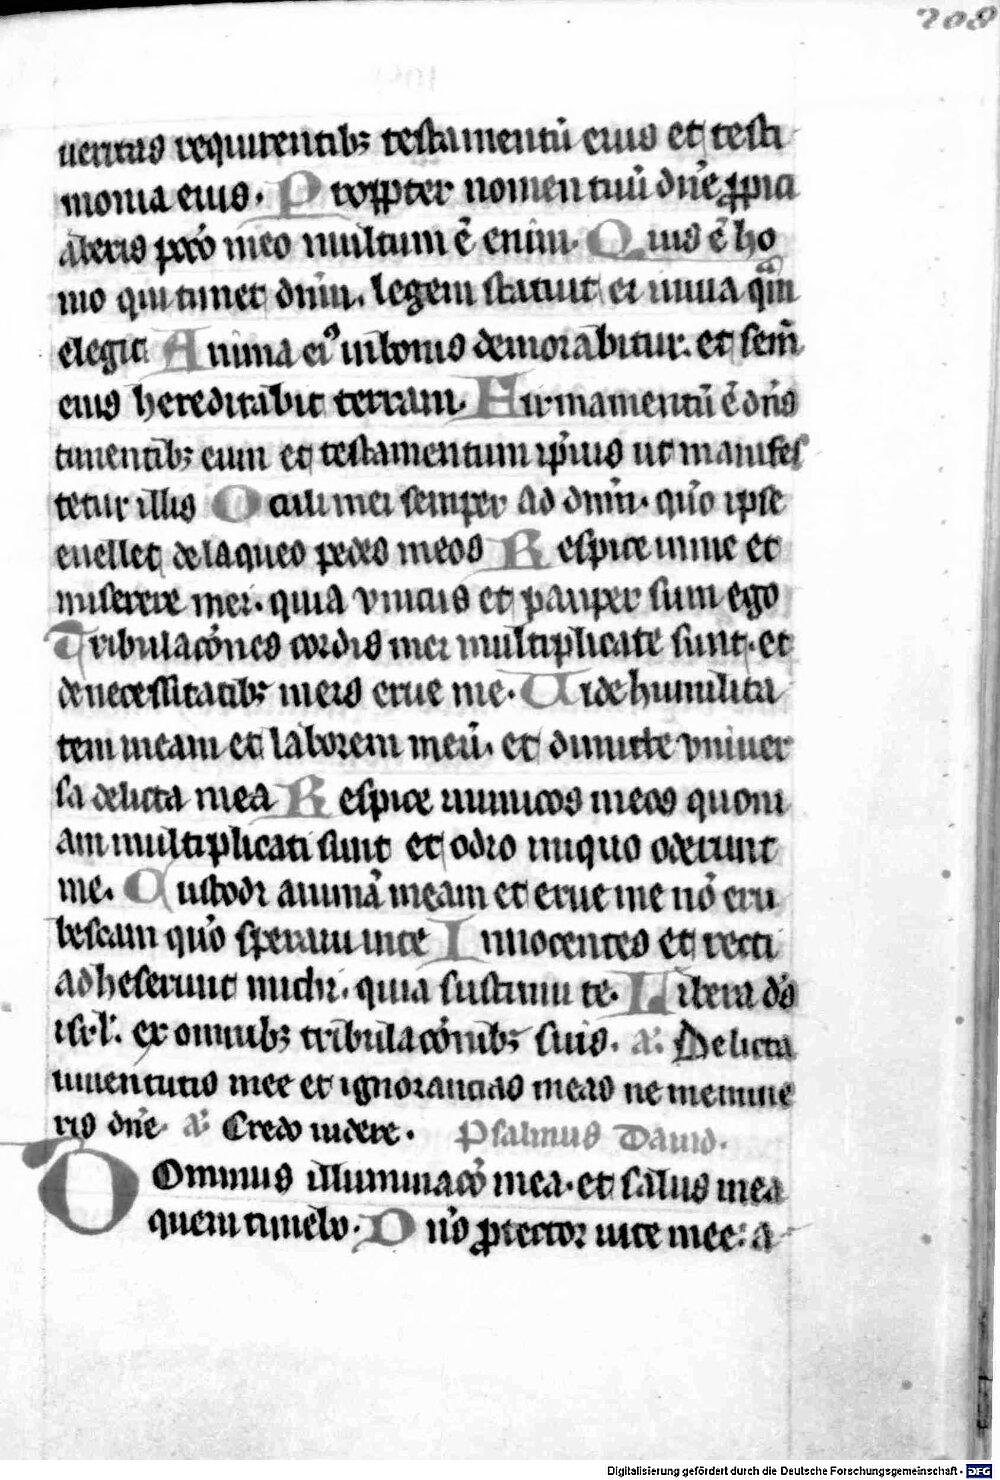 208
ueritas requirentibꝫ testamentū eius et testi
monia eius. Proppter nomen tuū dn̄e ꝓpicia
aberis pcc̄o meo multum ē enim. Quis ē ho
mo qui timet dnm̄. legem statuit ei in uia qm̄
elegit Anima eiꝰ in bonis demorabitur. et sem̄
eius hereditabit terram. Firmamentū ē dn̄s
timentibꝫ eum et testamentum ip̄ius ut manifes
tetur illis Oculi mei semper ad dnm̄. qūo ipse
euellet de laqueo pedes meos Respice in me et
miserere mei. quia vnicus et pauper sum ego
Tribulacōnes cordis mei multiplicate sunt. et
de necessitatibꝫ meis erue me. Uide humilita
tem meam et laborem meū. et dimitte vniuer
sa delicta mea Respice inimicos meos quoni
am multiplicati sunt et odio iniquo oderunt
me. Custodi animā meam et erue me nō eru
bescam qūo speraui in te Innocentes et recti
adheserunt michi. quia sustinui te. Libera ds̄
isrl̄. ex omnibꝫ tribulacōnibꝫ suis. a. Delicta
iuuentutis mee et ignorancias meas ne memine
ris dn̄e. a Credo uidere. Psalmus Dauid.
Dominus illuminacō mea. et salus mea
quem timebo. Dn̄s ꝓtector uite mee: a
Digitalisierung gefördert durch die Deutsche Forschungsgemeinschaft - DFG